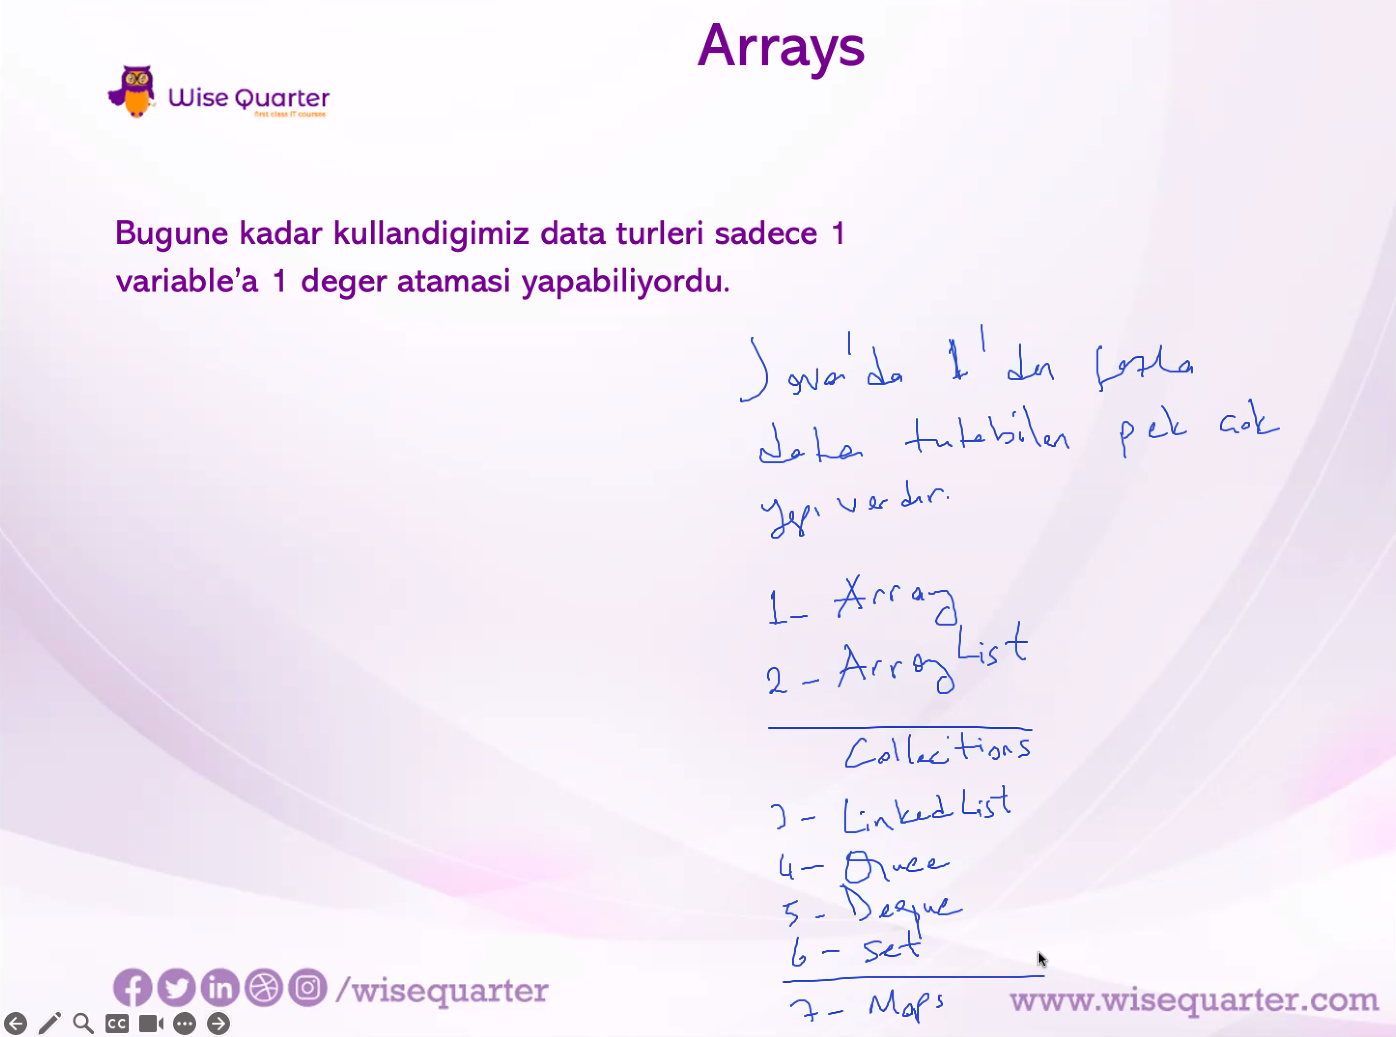 Arrays
Wise Quarter
first class IT courses
Bugune kadar kullandigimiz data turleri sadece 1
variable'a 1 deger atamasi yapabiliyordu.
Java'da 1'den fazla
data tutabilen pek cok
yapı vardır.
1- Array
2- ArrayList
Collections
3- LinkedList
4- Queue
5- Deque
6- Set
7- Maps
/wisequarter
www.wisequarter.com
CC